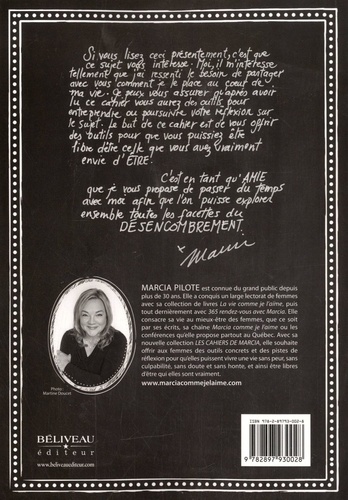 Si vous lisez ceci présentement, c'est que
ce sujet vous intéresse. Moi, il m'intéresse
tellement que j'ai ressenti le besoin de partager
avec vous comment je le place au coeur de
ma vie. Je peux vous assurer qu'après avoir
lu ce cahier vous aurez des outils pour
entreprendre ou poursuivre votre réflexion sur
le sujet. Le but de ce cahier est de vous offrir
des outils pour que vous puissiez être
libre d'être celle que vous avez vraiment
envie d'ÊTRE.
C'est en tant qu'AMIE
que je vous propose de passer du temps
avec moi afin que l'on puisse explorer
ensemble toutes les facettes du
DÉSENCOMBREMENT.
x Marcia
MARCIA PILOTE est connue du grand public depuis
plus de 30 ans. Elle a conquis un large lectorat de femmes
avec sa collection de livres La vie comme je l'aime, puis
tout dernièrement avec 365 rendez-vous avec Marcia. Elle
consacre sa vie au mieux-être des femmes, que ce soit
par ses écrits, sa chaîne Marcia comme je l'aime ou les
conférences qu'elle propose partout au Québec. Avec sa
nouvelle collection LES CAHIERS DE MARCIA, elle souhaite
offrir aux femmes des outils concrets et des pistes de
réflexion pour qu'elles puissent vivre une vie sans peur, sans
culpabilité, sans doute et sans honte, et ainsi être libres
d'être qui elles sont vraiment.
www.marciacommejelaime.com
Photo:
Martine Doucet
BÉLIVEAU
éditeur
www.beliveauediteur.com
ISBN 978-2-89793-002-8
9 782897 930028